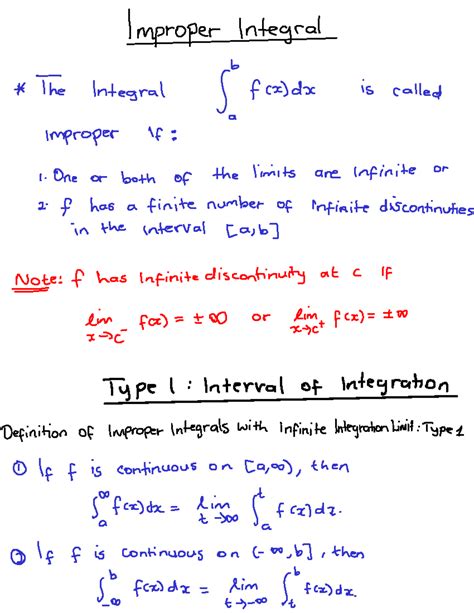 Improper Integral
* The Integral ∫_a^b f(x)dx is called
Improper If:
1. One or both of the limits are infinite or
2. f has a finite number of infinite discontinuties
in the interval [a,b]
Note: f has Infinite discontinuity at c If
lim x→c⁻ f(x) = ±∞ or lim x→c⁺ f(x) = ±∞
Type 1: Interval of Integration
Definition of Improper Integrals with Infinite Integration Limit: Type 1
① If f is continuous on [a,∞), then
∫_a^∞ f(x)dx = lim t→∞ ∫_a^t f(x)dx.
② If f is continuous on (-∞,b], then
∫_-∞^b f(x)dx = lim t→-∞ ∫_t^b f(x)dx.